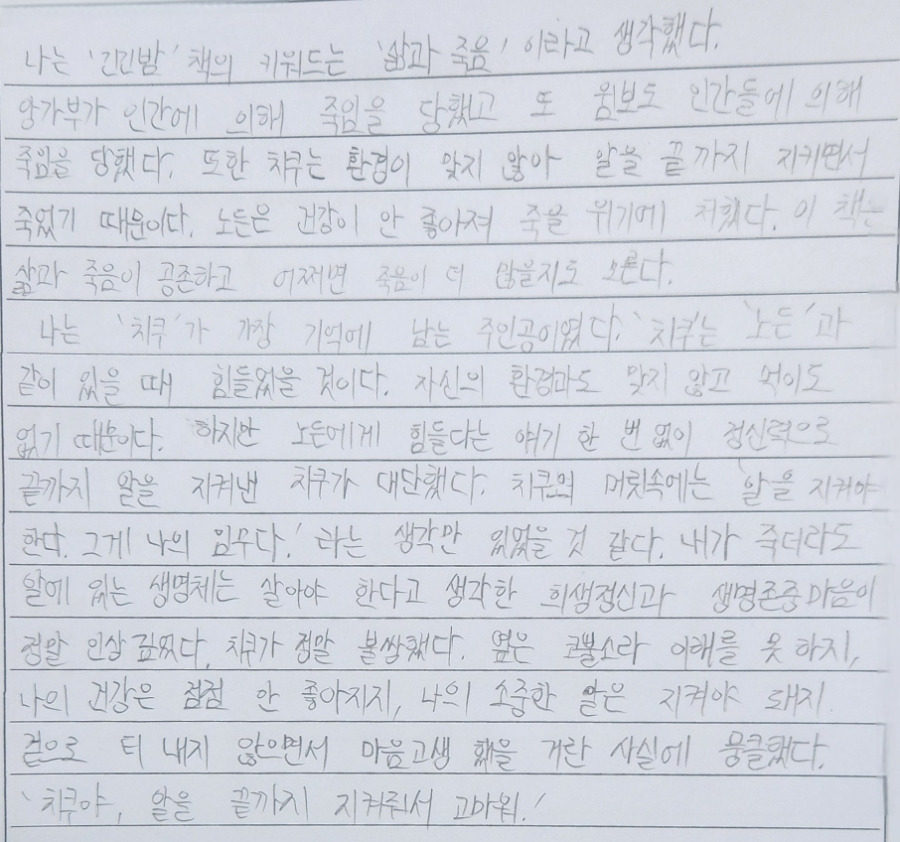 나는 '긴긴밤' 책의 키워드는 '삶과 죽음' 이라고 생각했다.
앙가부가 인간에 의해 죽임을 당했고 또 윔보도 인간들에 의해
죽임을 당했다. 또한 치쿠는 환경이 맞지 않아 알을 끝까지 지키면서
죽었기 때문이다. 노든은 건강이 안 좋아져 죽을 위기에 처했다. 이 책는
삶과 죽음이 공존하고 어쩌면 죽음이 더 많을지도 모른다.
나는 '치쿠'가 가장 기억에 남는 주인공이였다. '치쿠'는 '노든'과
같이 있을 때 힘들었을 것이다. 자신의 환경과도 맞지 않고 먹이도
없기 때문이다. 하지만 노든에게 힘들다는 얘기 한 번 없이 정신력으로
끝까지 알을 지켜낸 치쿠가 대단했다. 치쿠의 머릿속에는 '알을 지켜야
한다. 그게 나의 임무다.' 라는 생각만 있었을 것 같다. 내가 죽더라도
알에 있는 생명체는 살아야 한다고 생각한 희생정신과 생명존중마음이
정말 인상 깊었다. 치쿠가 정말 불쌍했다. 옆은 코뿔소라 이해를 못 하지,
나의 건강은 점점 안 좋아지지, 나의 소중한 알은 지켜야 돼지
겉으로 티 내지 않으면서 마음고생 했을 거란 사실에 뭉클했다.
'치쿠야, 알을 끝까지 지켜줘서 고마워.'